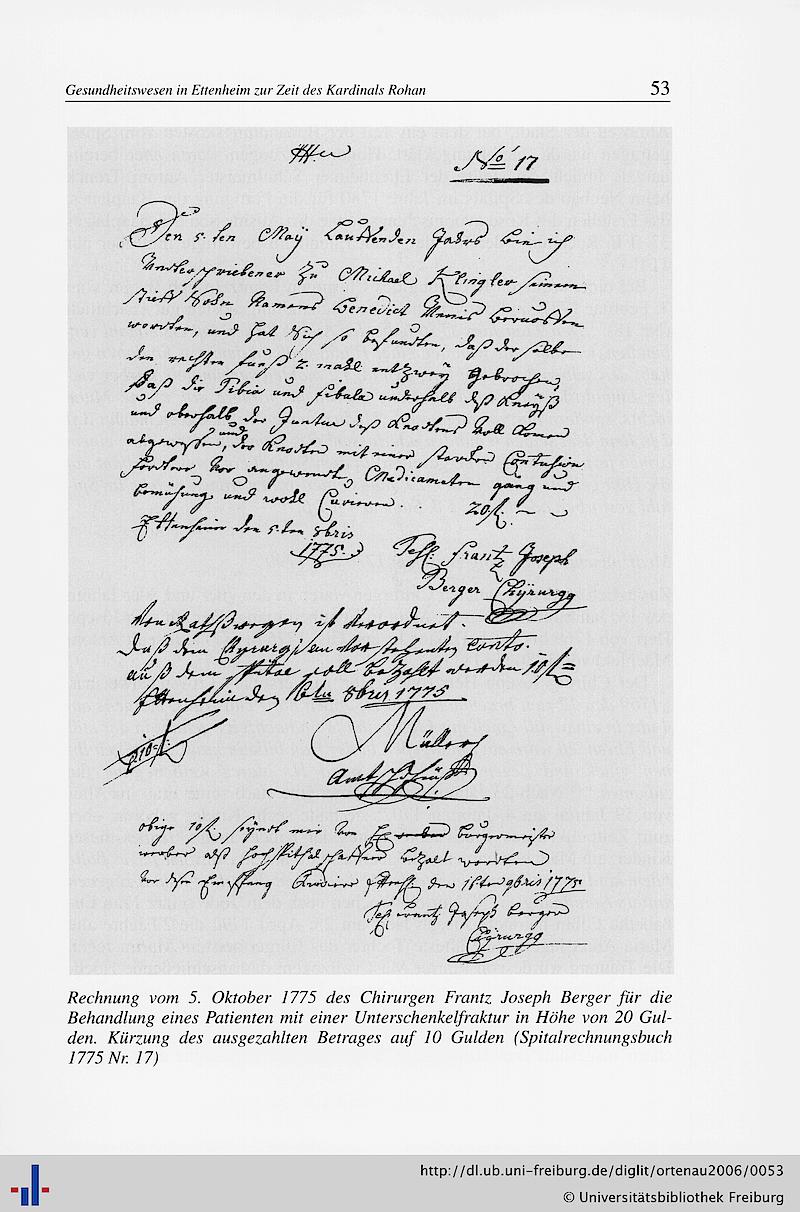 Gesundheitswesen in Ettenheim zur Zeit des Kardinals Rohan 53
No 17
Den 5. ten May Lauffenden Jahrs bin ich
Underschriebener zu Michael Klingler seinem
stieff Sohn Namens Benedict beruoffen
wordten, und hat Sich so befundten, daß der selbe
den rechten fueß 2. mahl entzwey Gebrochen,
daß die Tibia und fibula underhalb deß Kneyß
und oberhalb der deß Knodtens Voll Komen
und
der Knodten mit einer starcken Contusion
fordtere Vor angewendte Medicamenten gäng und
bemühung und wohl Curieren . . 20 fl. – –
Ettenheim den 5. ten 8bris
1775.
Frantz Joseph
Berger Chÿrurgg
Von Rathßwegen ist Verordnet.
Daß dem Chyrurgj Conto.
auß dem spital soll bezahlt werden 10 fl
Ettenheim den 8bris 1775
10 fl.
Müller
Amts
obige 10 fl. seyndt mir Von burgermeister
werber alß bezalt wordten
Vor den Empfang den 16ten 9bris 1775
frantz Joseph berger
Chyrurgg
Rechnung vom 5. Oktober 1775 des Chirurgen Frantz Joseph Berger für die
Behandlung eines Patienten mit einer Unterschenkelfraktur in Höhe von 20 Gul-
den. Kürzung des ausgezahlten Betrages auf 10 Gulden (Spitalrechnungsbuch
1775 Nr. 17)
http://dl.ub.uni-freiburg.de/diglit/ortenau2006/0053
© Universitätsbibliothek Freiburg